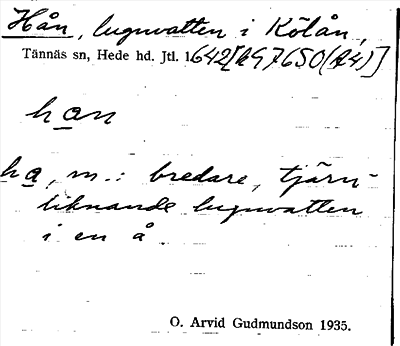 Hån, lugnvatten i Kölån,
Tännäs sn, Hede hd. Jtl. 1642[RN7650(R4)]
han
ha, m.: bredare, tjärn-
liknande lugnvatten
i en å.
O. Arvid Gudmundson 1935.